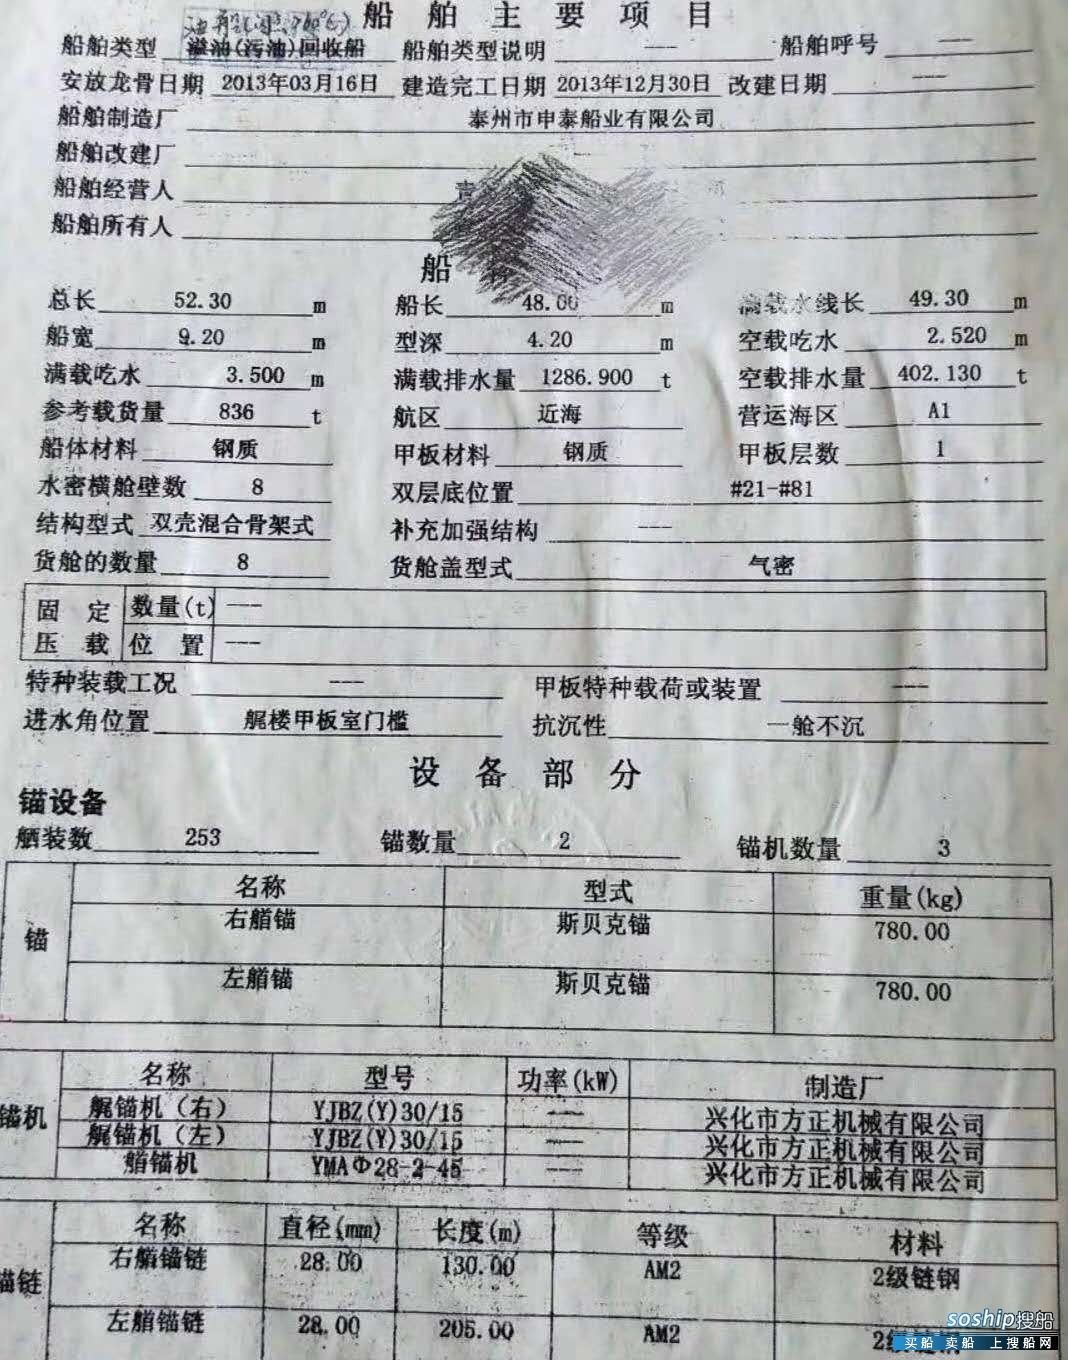 船舶主要项目
船舶类型 溢油(污油)回收船 船舶类型说明 --- 船舶呼号 ---
安放龙骨日期 2013年03月16日 建造完工日期 2013年12月30日 改建日期 ---
船舶制造厂 泰州市申泰船业有限公司
船舶改建厂 ---
船舶经营人
船舶所有人
船
总长 52.30 m 船长 48.00 m 满载水线长 49.30 m
船宽 9.20 m 型深 4.20 m 空载吃水 2.520 m
满载吃水 3.500 m 满载排水量 1286.900 t 空载排水量 402.130 t
参考载货量 836 t 航区 近海 营运海区 A1
船体材料 钢质 甲板材料 钢质 甲板层数 1
水密横舱壁数 8 双层底位置 #21-#81
结构型式 双壳混合骨架式 补充加强结构 ---
货舱的数量 8 货舱盖型式 气密
固定 数量(t) ---
压载 位置 ---
特种装载工况 --- 甲板特种载荷或装置 ---
进水角位置 艉楼甲板室门槛 抗沉性 一舱不沉
设备部分
锚设备
舾装数 253 锚数量 2 锚机数量 3
锚 名称 型式 重量(kg)
右艏锚 斯贝克锚 780.00
左艏锚 斯贝克锚 780.00
锚机 名称 型号 功率(kW) 制造厂
艉锚机（右） YJBZ(Y)30/15 --- 兴化市方正机械有限公司
艉锚机（左） YJBZ(Y)30/15 --- 兴化市方正机械有限公司
艏锚机 YMAΦ28-2-45 --- 兴化市方正机械有限公司
锚链 名称 直径(mm) 长度(m) 等级 材料
右艏锚链 28.00 130.00 AM2 2级链钢
左艏锚链 28.00 205.00 AM2 2级链钢
soship搜船
买船 卖船 上搜船网